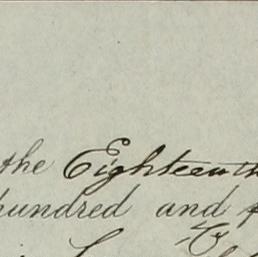 the Eighteenth
hundred and